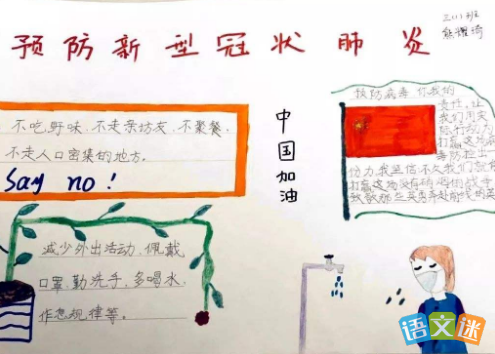 三(1)班
熊耀琦
预防新型冠状肺炎
不吃野味,不走亲坊友,不聚餐,
不走人口密集的地方.
Say no!
减少外出活动,佩戴
口罩,勤洗手,多喝水,
作息规律等。
中国加油
预防病毒 你我的
责任,让
我们用实
际行动力
打赢这场
毒防控
协力,我坚信不久我们
打赢这场没有硝烟的战
致敬那些
语文迷